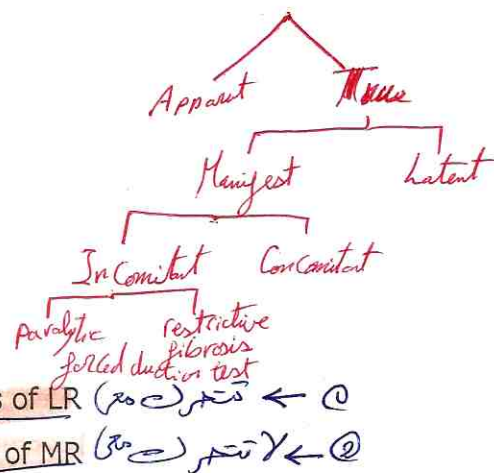 Apparent True
Manifest Latent
Incomitant Concomitant
paralytic restrictive
fibrosis
forced duction test
s of LR ← ①
of MR ← ②